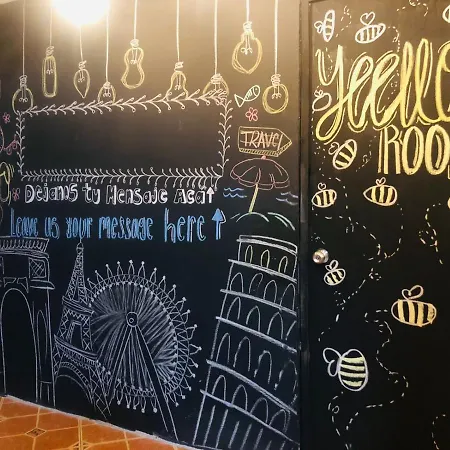 TRAVEL
Dejanos tu Mensaje Acá↑
Leave us your message here ↑
Yeello
ROO